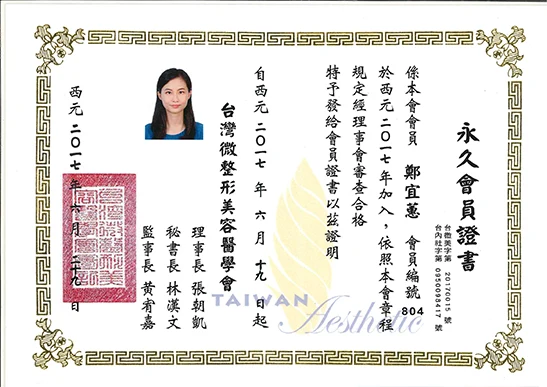 永久會員證書
台微美字第 20170015 號
台內社字第 0950098417 號
係本會會員 鄭宜蕙 會員編號 804
於西元二O一七年加入，依照本會章程
規定經理事會審查合格
特予發給會員證書以茲證明
自西元 二O一七 年 六 月 十九 日起
台灣微整形美容醫學會
理事長 張朝凱
秘書長 林漢文
監事長 黃宥嘉
西元 二O一七 年 六 月 二十九 日
TAIWAN
Aesthetic